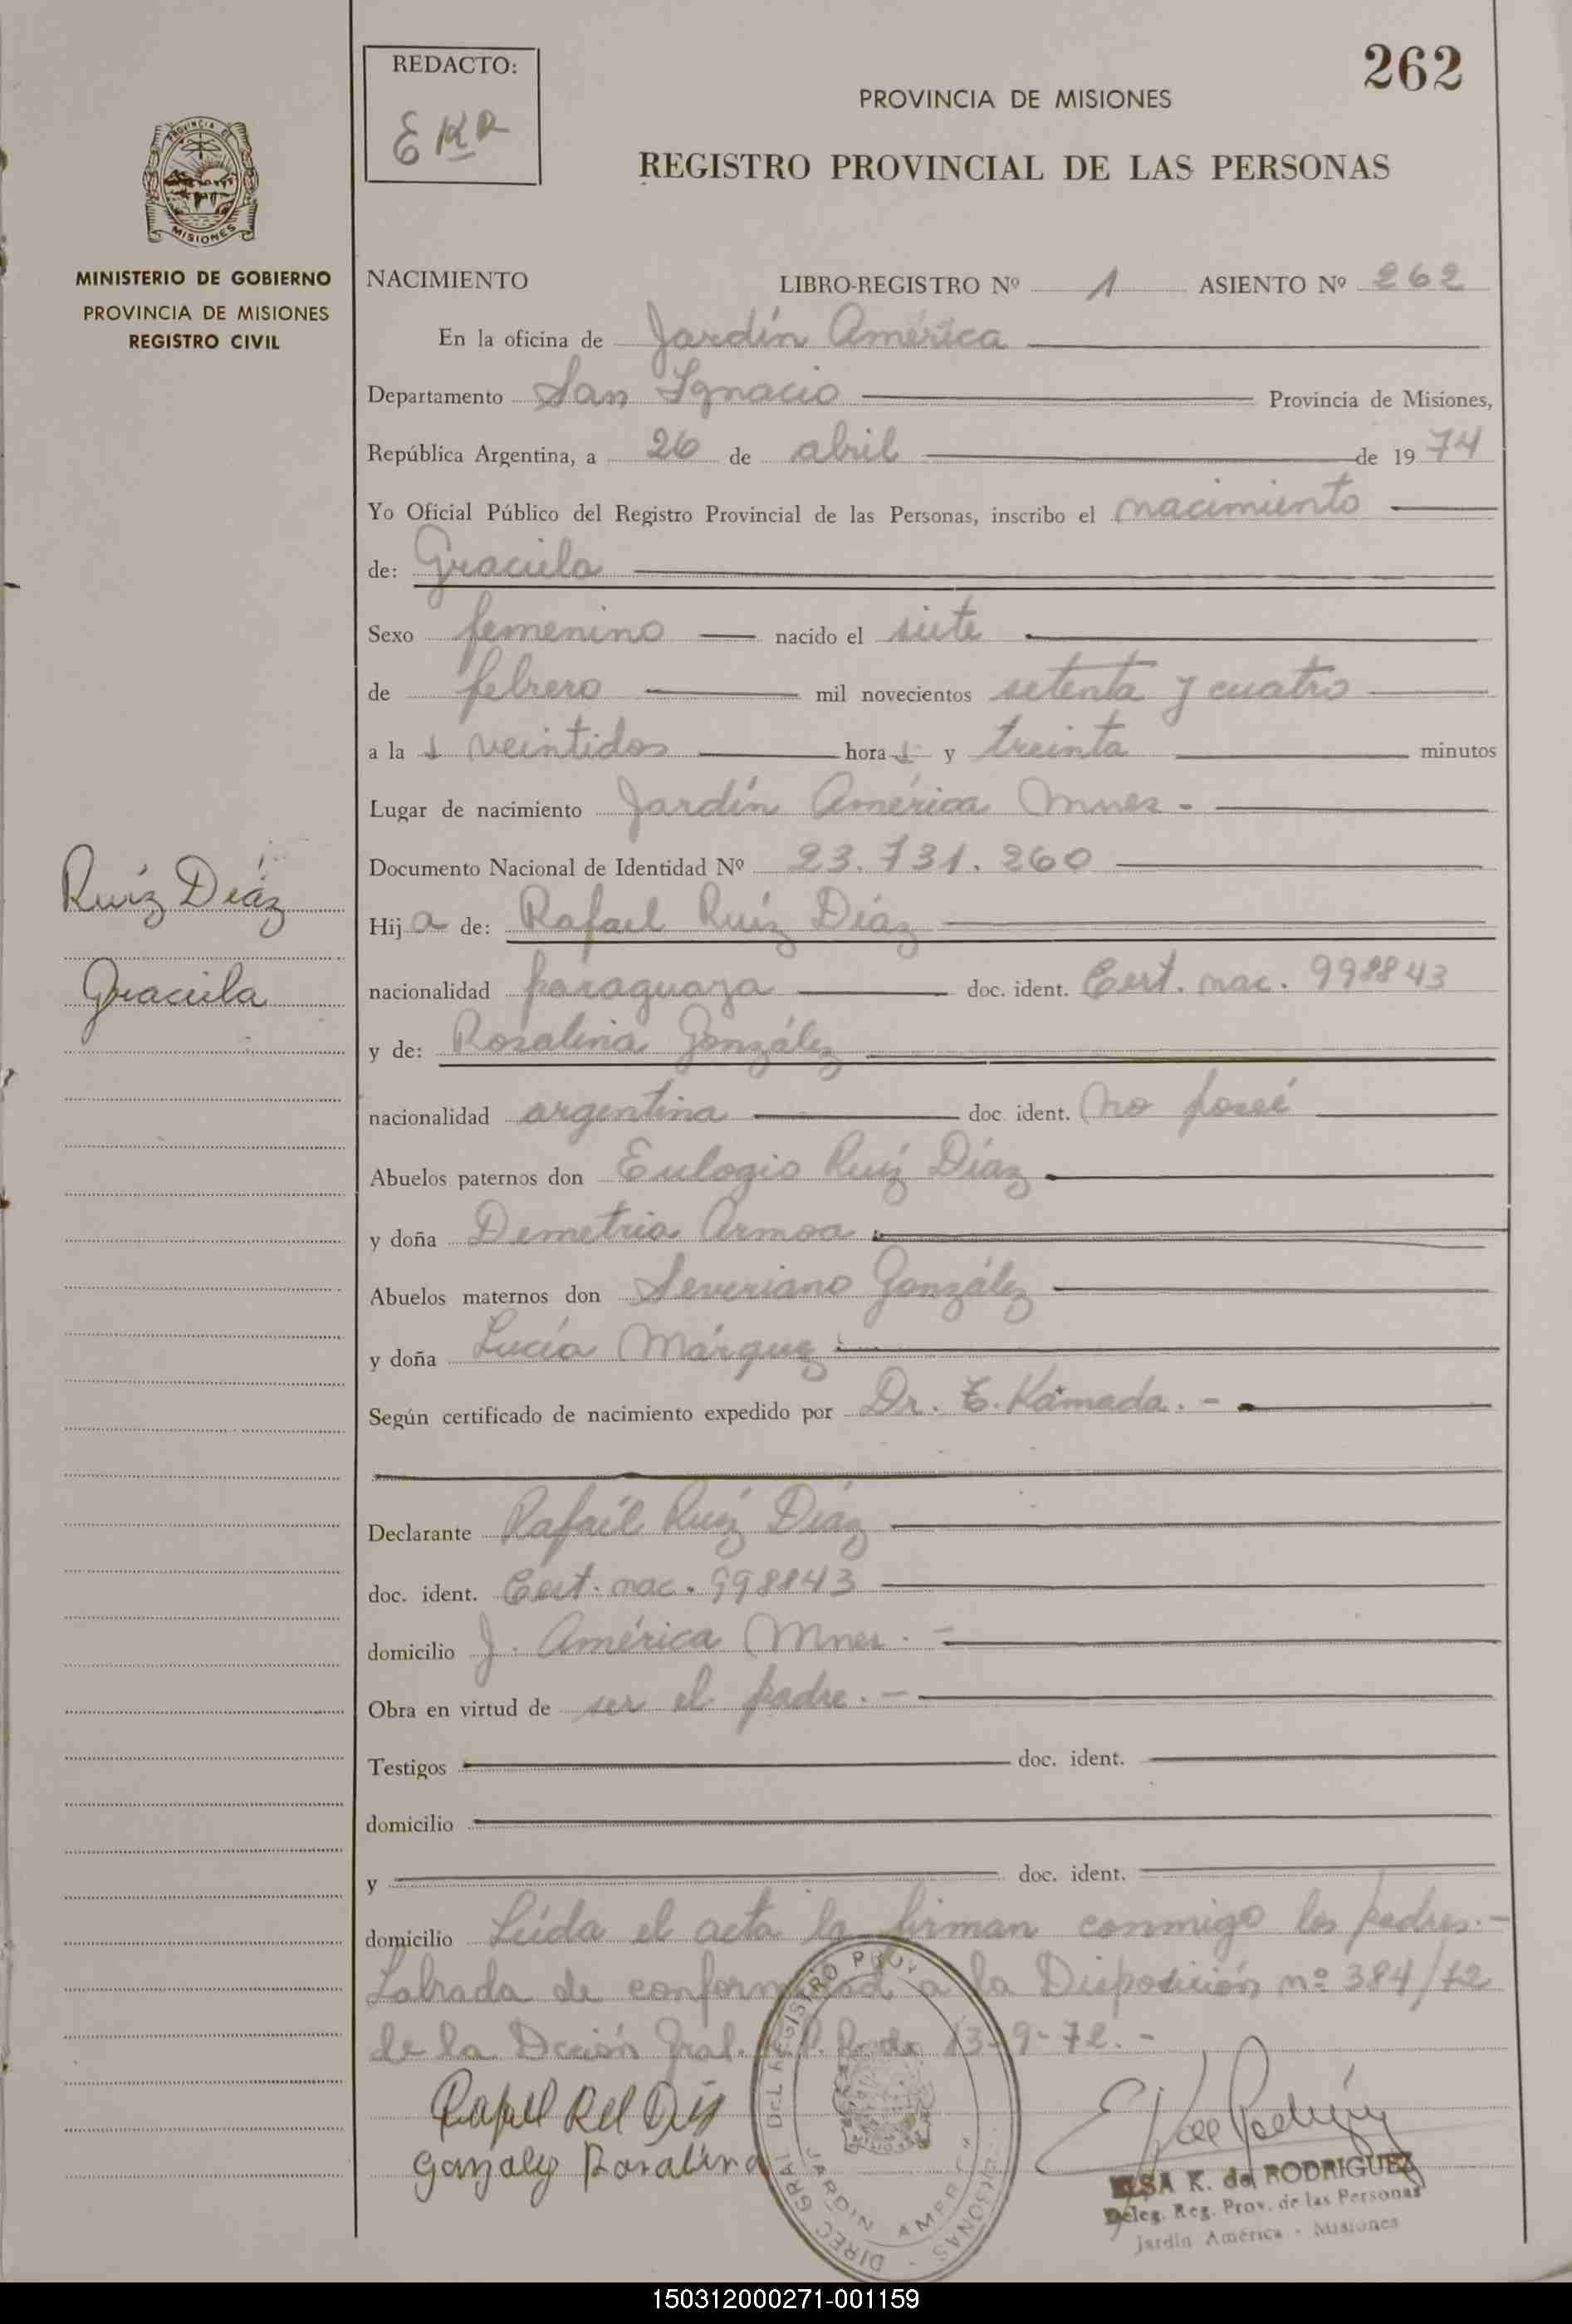 262
REDACTO:
EKR
PROVINCIA DE MISIONES
REGISTRO PROVINCIAL DE LAS PERSONAS
PROVINCIA DE
MISIONES
MINISTERIO DE GOBIERNO
PROVINCIA DE MISIONES
REGISTRO CIVIL
NACIMIENTO LIBRO-REGISTRO Nº 1 ASIENTO Nº 262
En la oficina de Jardín América
Departamento San Ignacio Provincia de Misiones,
República Argentina, a 26 de abril de 1974
Yo Oficial Público del Registro Provincial de las Personas, inscribo el nacimiento
de: Graciela
Sexo femenino nacido el siete
de febrero mil novecientos setenta y cuatro
a la s veintidos hora s y treinta minutos
Lugar de nacimiento Jardín América Mnes -
Documento Nacional de Identidad Nº 23.731.260
Ruíz Díaz
Hija de: Rafael Ruíz Díaz
Graciela
nacionalidad paraguaya doc. ident. Cert. nac. 998843
y de: Rosalina González
nacionalidad argentina doc. ident. No poseé
Abuelos paternos don Eulogio Ruíz Díaz
y doña Demetria Armoa
Abuelos maternos don Severiano González
y doña Lucía Márquez
Según certificado de nacimiento expedido por Dr. E. Kamada. -
Declarante Rafaél Ruíz Díaz
doc. ident. Cert. nac. 998843
domicilio J. América Mnes. -
Obra en virtud de ser el padre. -
Testigos doc. ident.
domicilio
y doc. ident.
domicilio Leída el acta la firman conmigo los padres. -
Labrada de conformidad a la Disposición nº 384/72
de la Dción Gral. R.P.P. de 13-9-72. -
Gonzalez Rosalina
DIREC GRAL DEL REGISTRO PROV. PERSONAS
JARDIN AMERICA
ELSA K. de RODRIGUEZ
Deleg. Reg. Prov. de las Personas
Jardín América - Misiones
150312000271-001159